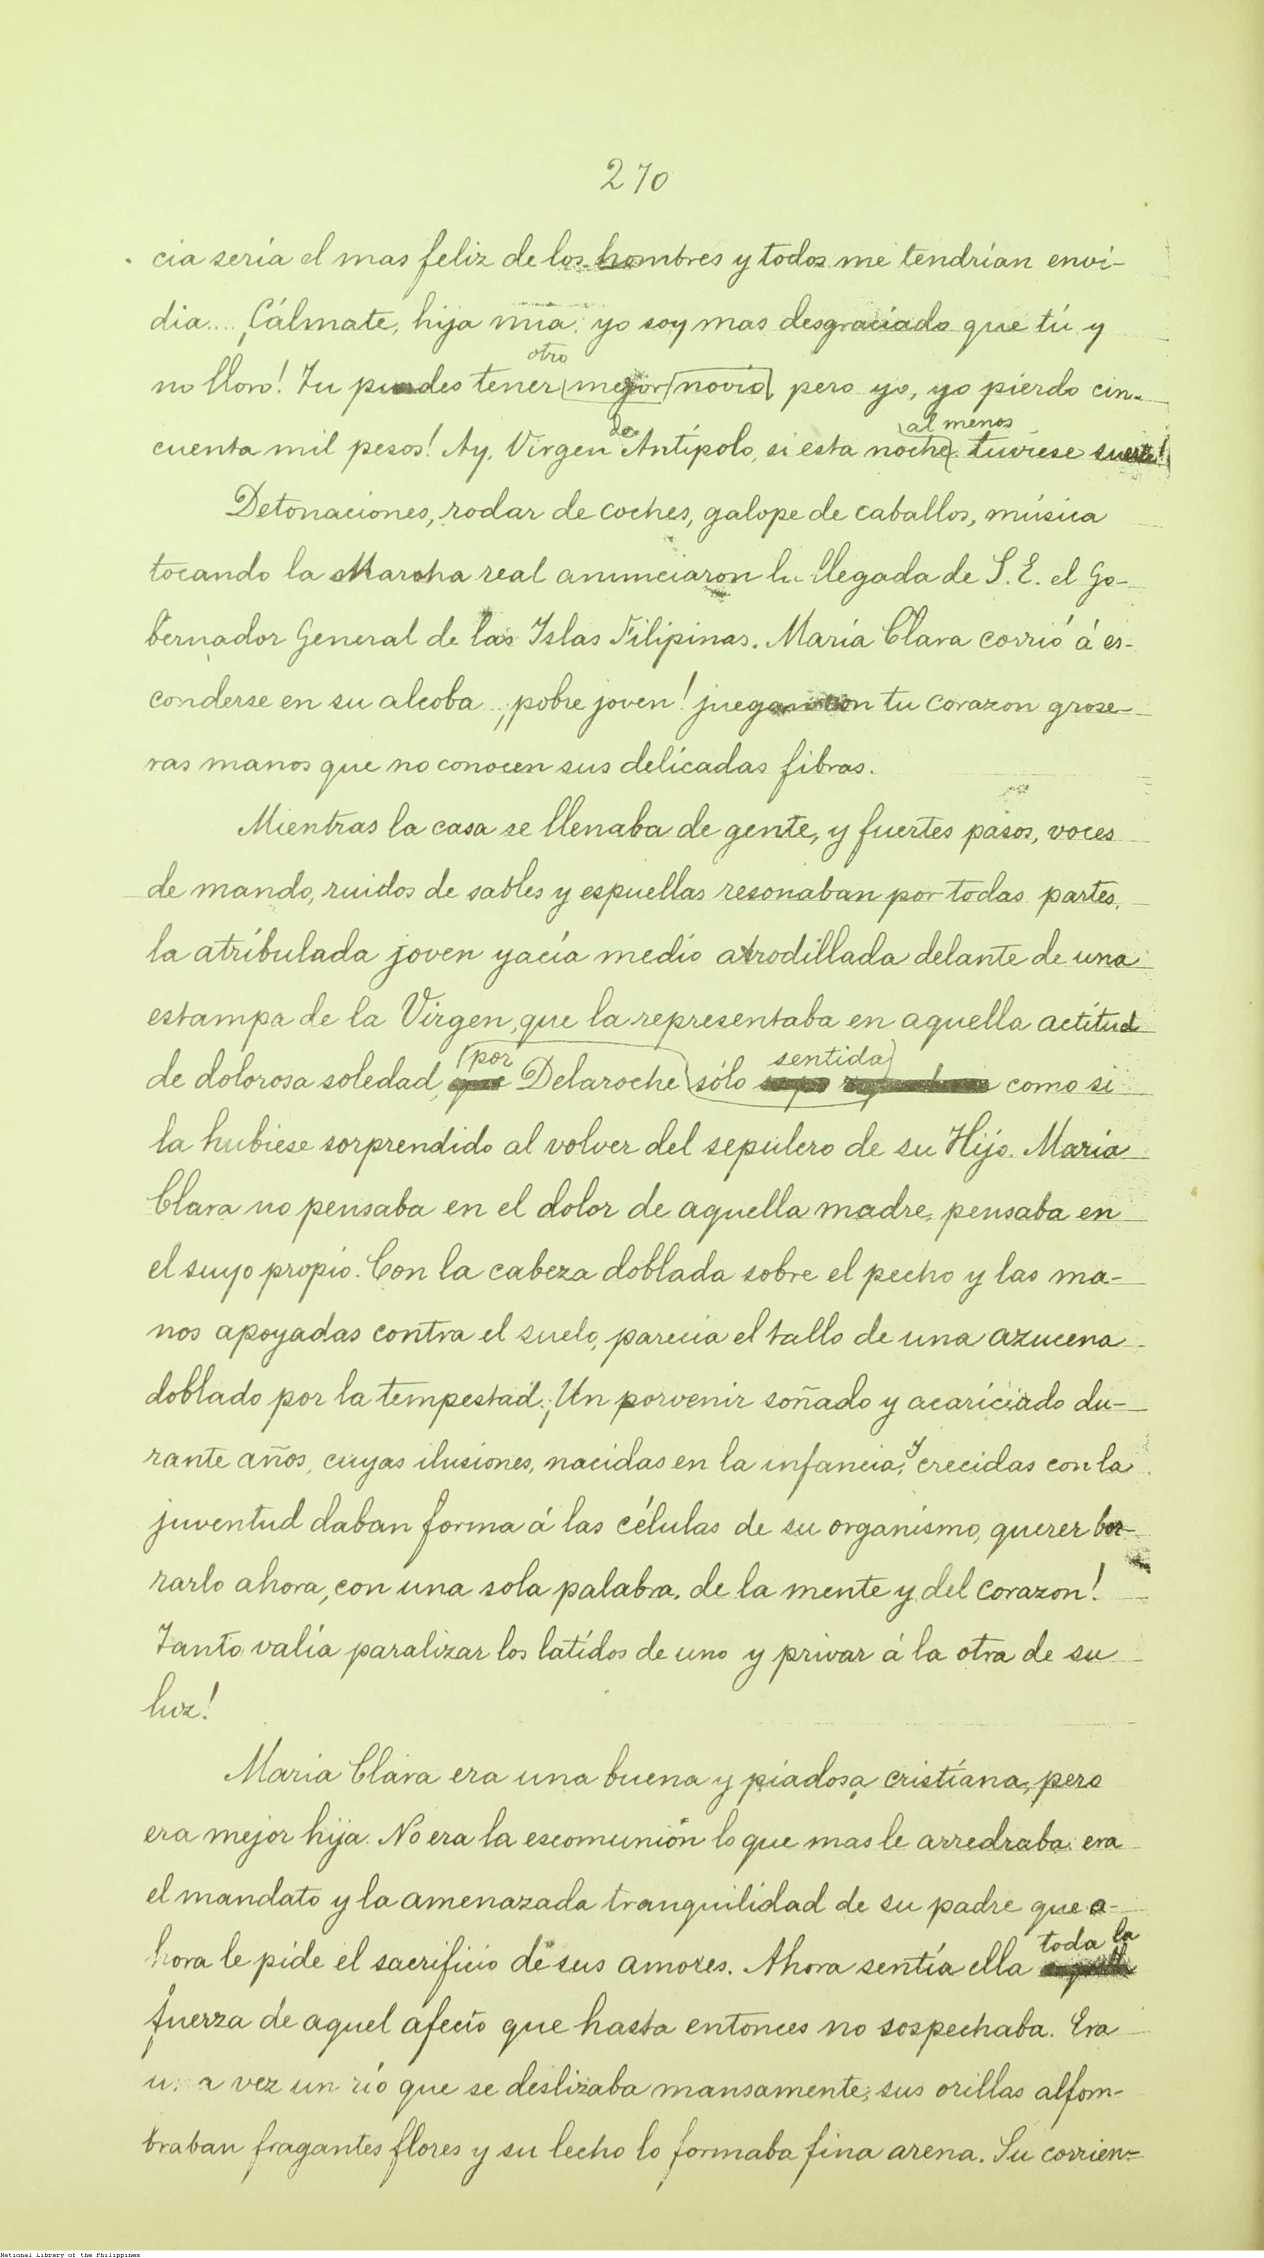 270
cia sería el mas feliz de los hombres y todos me tendrían envi-
dia.... ¡Cálmate, hija mia; yo soy mas desgraciado que tú y
otro
no lloro! Tu puedes tener mejor novio, pero yo, yo pierdo cin-
de al menos
cuenta mil pesos! Ay, Virgen Antípolo, si esta noche tuviese suerte!
Detonaciones, rodar de coches, galope de caballos, música
tocando la Marcha real anunciaron la llegada de S. E. el Go-
bernador General de las Islas Filipinas. María Clara corrió á es-
conderse en su alcoba... ¡pobre joven! juegan con tu corazon grose-
ras manos que no conocen sus delicadas fibras.
Mientras la casa se llenaba de gente, y fuertes pasos, voces
de mando, ruidos de sables y espuellas resonaban por todas partes,
la atribulada joven yacía medio arrodillada delante de una
estampa de la Virgen, que la representaba en aquella actitud
por sentida
de dolorosa soledad, que Delaroche sólo como si
la hubiese sorprendido al volver del sepulcro de su Hijo. María
Clara no pensaba en el dolor de aquella madre, pensaba en
el suyo propio. Con la cabeza doblada sobre el pecho y las ma-
nos apoyadas contra el suelo, parecia el tallo de una azucena
doblado por la tempestad. ¡Un porvenir soñado y acariciado du-
rante años, cuyas ilusiones, nacidas en la infancia, y crecidas con la
juventud daban forma á las células de su organismo, querer bor-
rarlo ahora, con una sola palabra, de la mente y del corazon!
Tanto valía paralizar los latidos de uno y privar á la otra de su
luz!
Maria Clara era una buena y piadosa cristiana, pero
era mejor hija. No era la escomunión lo que mas le arredraba: era
el mandato y la amenazada tranquilidad de su padre que a-
toda la
hora le pide el sacrificio de sus amores. Ahora sentía ella
fuerza de aquel afecto que hasta entonces no sospechaba. Era
una vez un río que se deslizaba mansamente; sus orillas alfom-
braban fragantes flores y su lecho lo formaba fina arena. Su corrien-
National Library of the Philippines